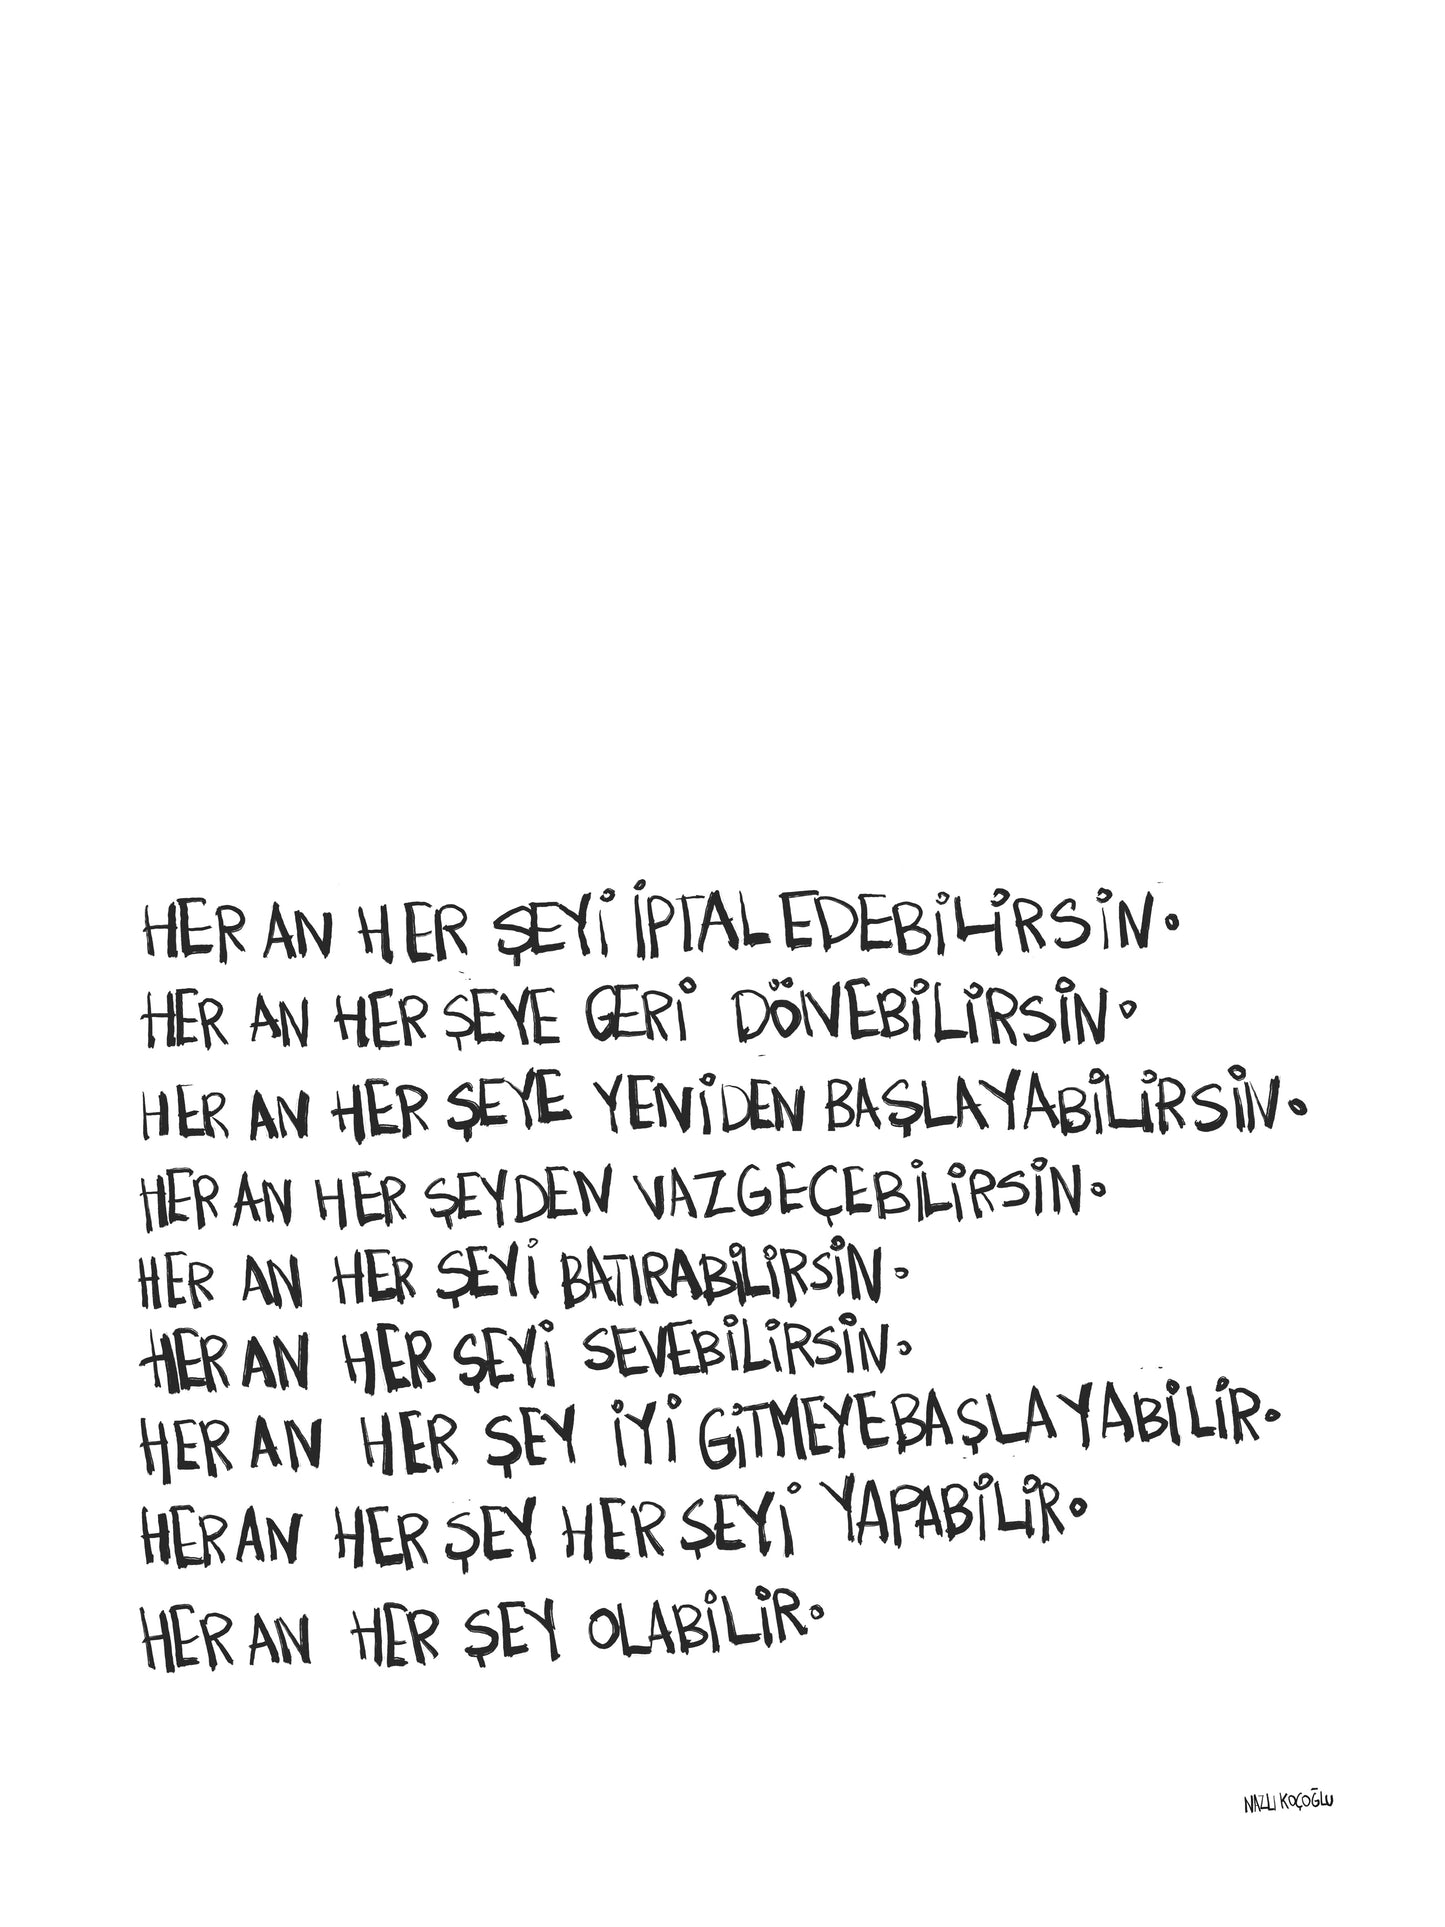 HER AN HER ŞEYİ İPTAL EDEBİLİRSİN.
HER AN HER ŞEYE GERİ DÖNEBİLİRSİN.
HER AN HER ŞEYE YENİDEN BAŞLAYABİLİRSİN.
HER AN HER ŞEYDEN VAZGEÇEBİLİRSİN.
HER AN HER ŞEYİ BATIRABİLİRSİN.
HER AN HER ŞEYİ SEVEBİLİRSİN.
HER AN HER ŞEY İYİ GİTMEYE BAŞLAYABİLİR.
HER AN HER ŞEY HER ŞEYİ YAPABİLİR.
HER AN HER ŞEY OLABİLİR.
NAZLI KOÇOĞLU